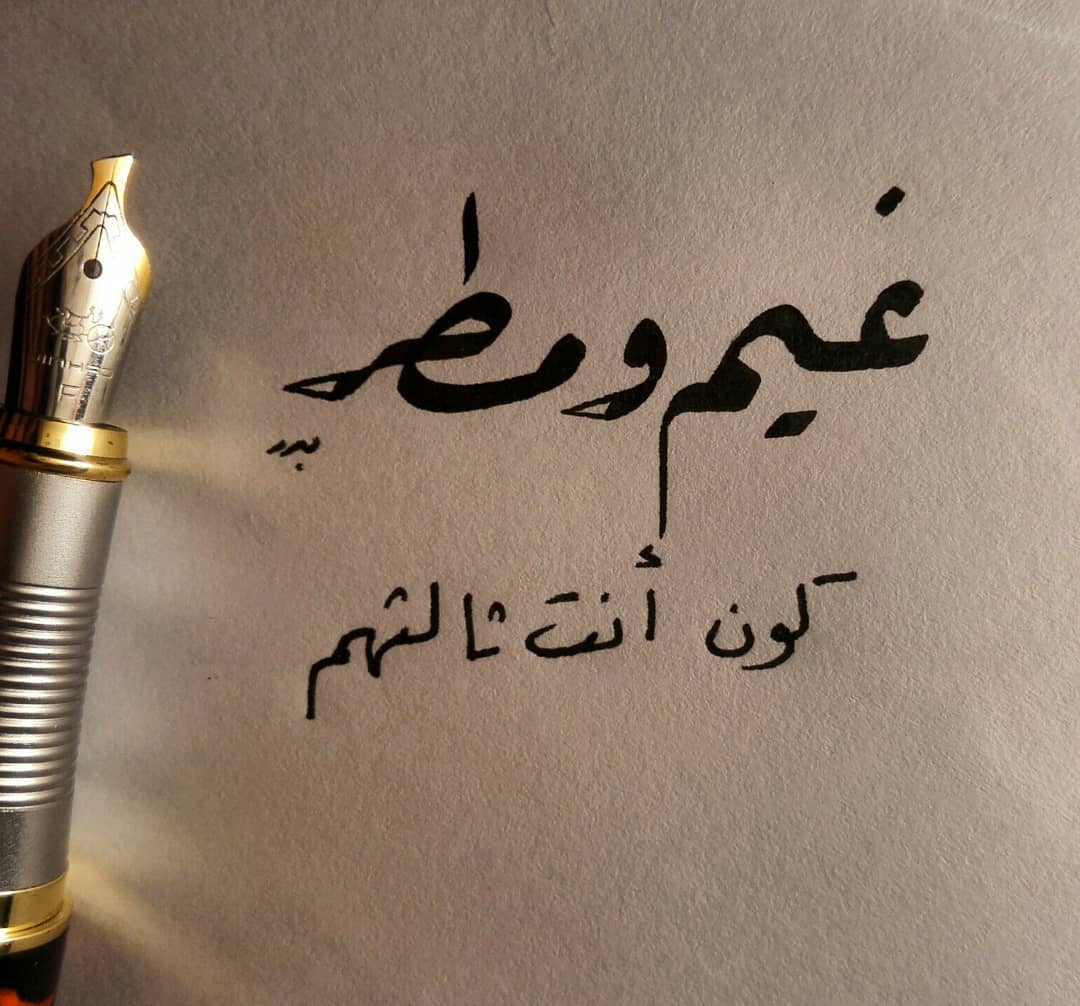 غيم ومطر
بدر
كون أنت ثالثهم